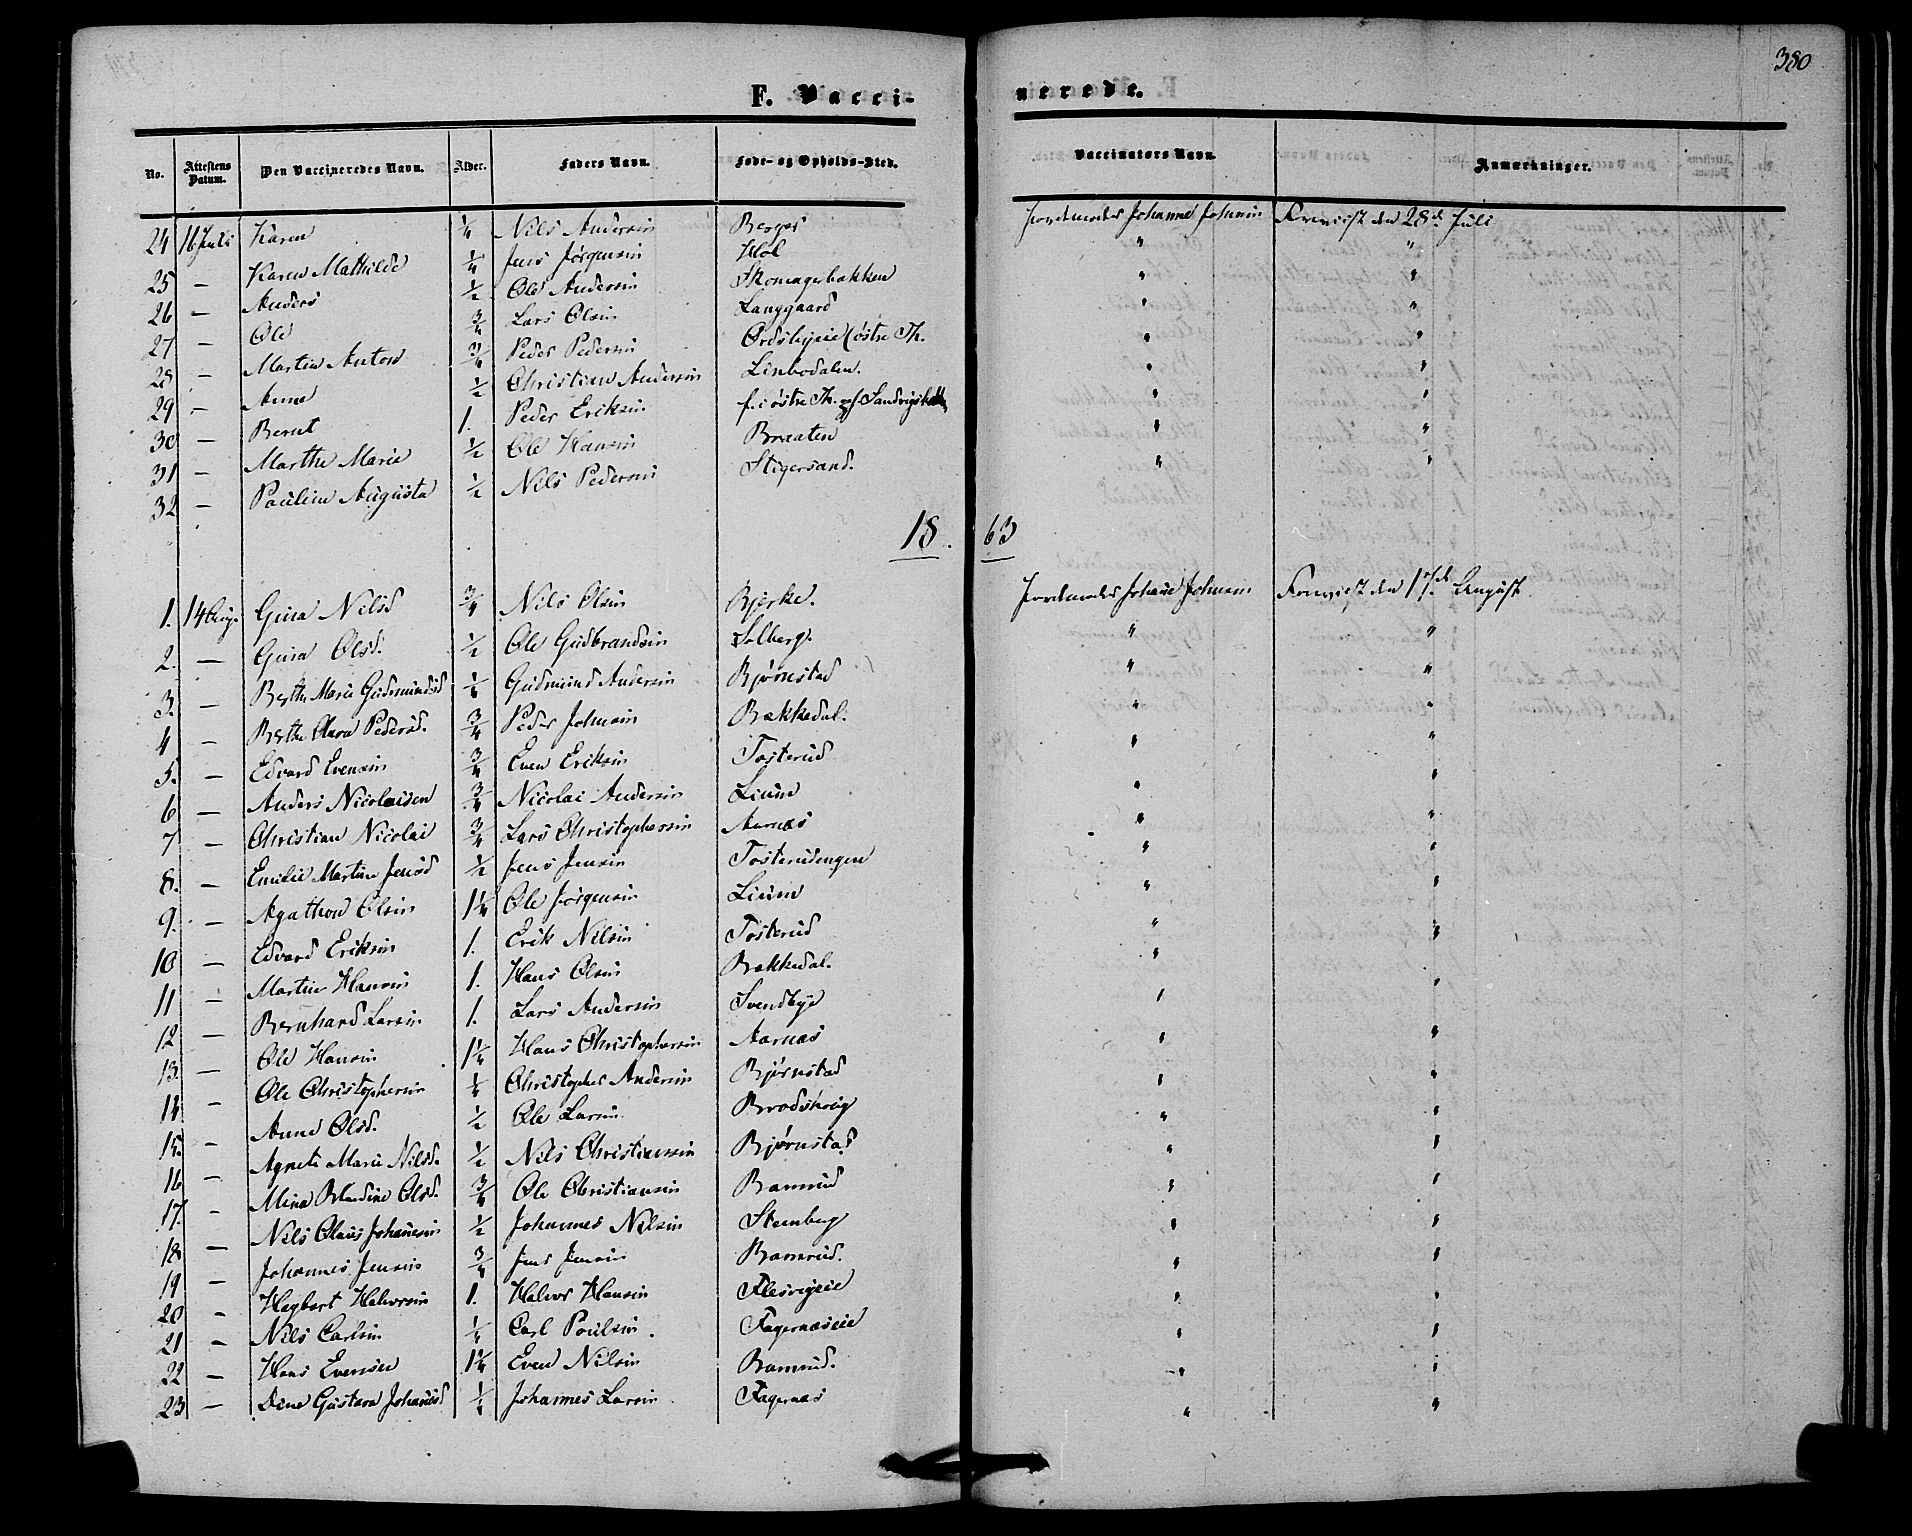 380
F. Vaccinerede.
No. Attestens Datum. Den Vaccineredes Navn. Alder. Faders Navn. Føde- og Opholds-Sted. Vaccinators Navn. Anmærkninger.
24 16 Juli Karen 1/4 Nils Andersen Berger Jordemoder Johanne Johnsen Revisist den 28de Juli
25 — Karen Mathilde 1/4 Jens Jørgensen Hol " "
26 — Anders 1/2 Ole Andersen Skomagerbakken " "
27 — Ole 3/4 Lars Olsen Langgaard " "
28 — Martin Anton 3/4 Peder Pedersen (østre Th. " "
29 — Anne 1/2 Christian Andersen Linbodalen. " "
30 — Bernt 1. Peder Eriksen f. i østre Th. " "
31 — Marthe Marie 1/2 Ole Hansen Braaten " "
32 — Pauline Augusta 1/2 Nils Pedersen Stigersand. " "
18. 63
1. 14 Aug. Gina Nilsd 3/4 Nils Olsen Bjerke. Jordemoder Johane Johnsen den 17de August
2. — Gina Olsd. 1/2 Ole Gudbrandsen Solberg. " "
3. — Berthe Marie Gudmundsd 1/2 Gudmund Andersen Bjørnstad " "
4 — Berthe Clara Pedersd. 3/4 Peder Johnsen Bækkedal. " "
5. — Edvard Evensen 3/4 Even Eriksen Tosterud " "
6 — Anders Nicolaisen 3/4 Nicolai Andersen Lium " "
7 — Christian Nicolai 3/4 Lars Christophersen Aarnæs " "
8. — Emilie Martine Jensd 1/2 Jens Jensen Tosterudengen " "
9. — Agathon Olsen 1 1/4 Ole Jørgensen Lium " "
10 — Edvard Eriksen 1. Erik Nilsen Tosterud " "
11 — Martin Hansen 1. Hans Olsen Bækkedal. " "
12 — Bernhard Larsen 1. Lars Andersen Svendbye " "
13. — Ole Hansen 1 1/4 Hans Christophersen Aarnæs " "
14 — Ole Christophersen 1/4 Christopher Andersen Bjørnstad " "
15. — Anne Olsd. 1/2 Ole Larsen " "
16 — Agnete Marie Nilsd. 1/2 Nils Christiansen Bjørnstad " "
17. — Mina Blandine Olsd. 3/4 Ole Christiansen Bamrud " "
18 — Nils Olaus Johanesen 1/2 Johannes Nilsen Stenberg " "
19 — Johannes Jensen 3/4 Jens Jensen Bamrud. " "
20 — Hagbart Halvorsen 1. Halvor Hansen Flesvigeie " "
21 — Nils Carlsen 1/4 Carl Poulsen Fagernæseie " "
22 — Hans Evensen 1 1/4 Even Nilsen Bamrud. " "
23 — Dine Gustava Johanesd 1/2 Johannes Larsen Fagernæs " "